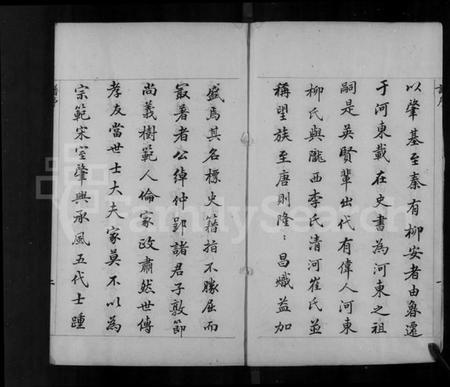 以肇基至秦有柳安者由魯遷
于河東載在史書為河東之祖
嗣是英賢輩出代有偉人河東
柳氏與隴西李氏清河崔氏並
稱望族至唐則隆隆昌熾益加
盛焉其名標史籍指不勝屈而
最著者公綽仲郢諸君子敦節
尚義樹範人倫家政肅然世傳
孝友當世士大夫家莫不以為
宗範宋室肇興承風五代士踵
FamilySearch